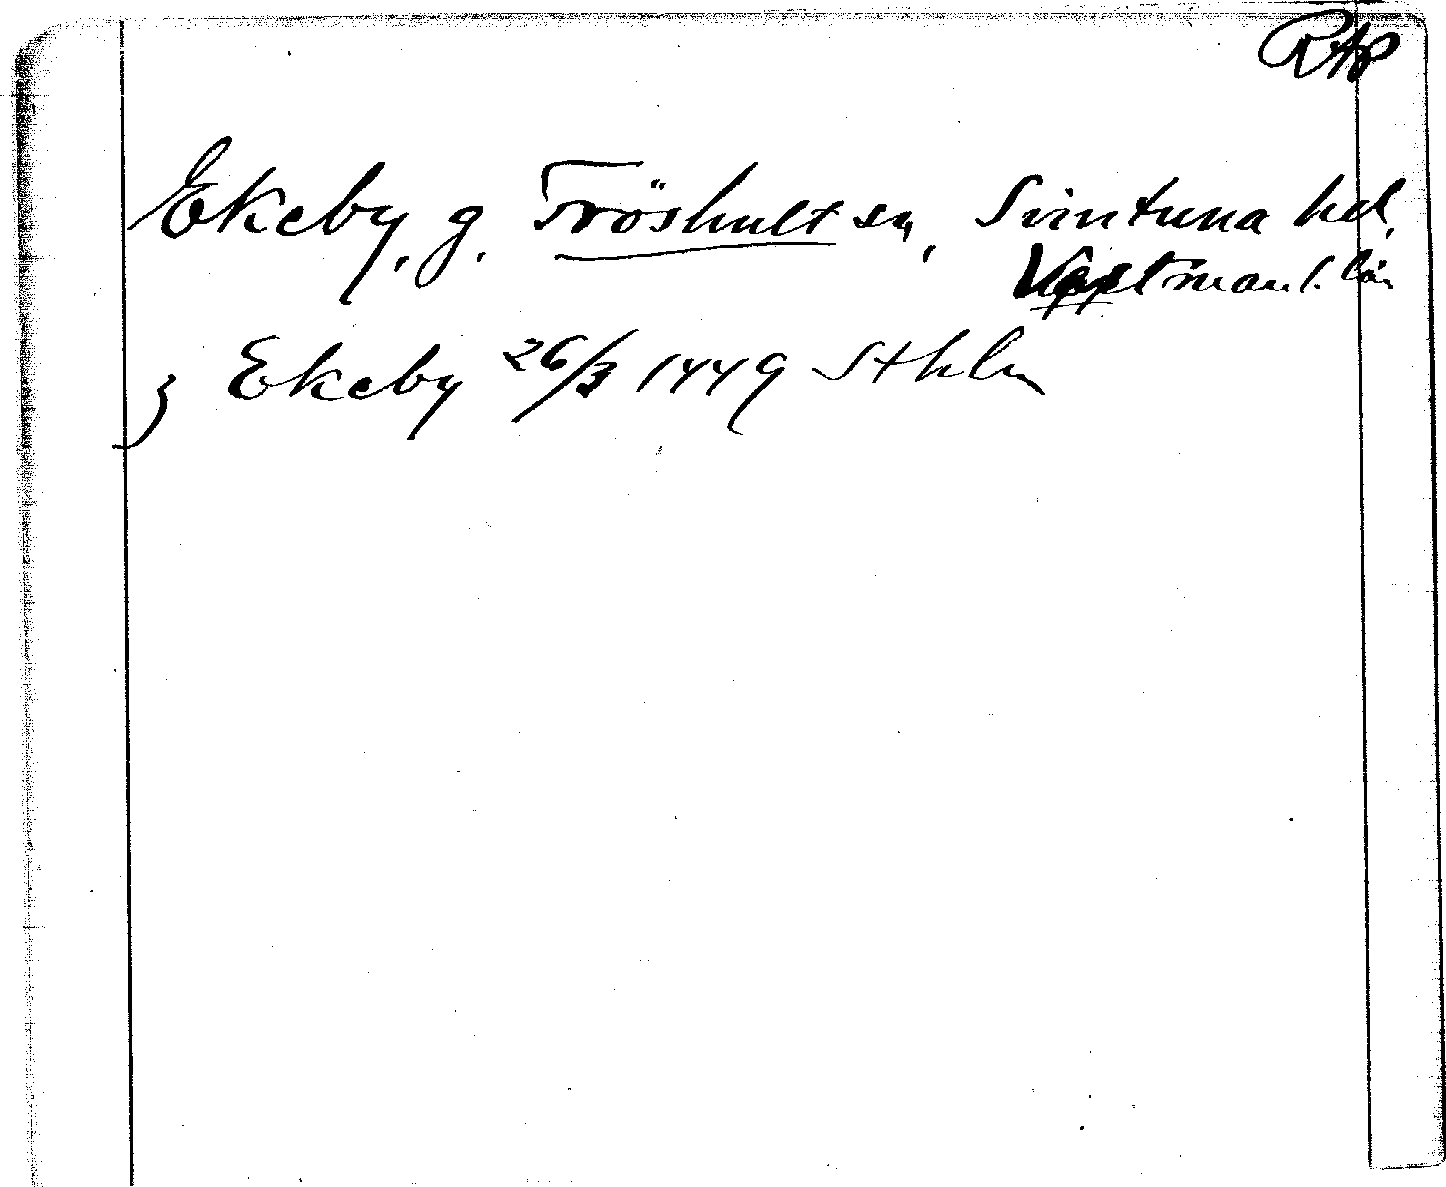 RAp
Ekeby, g. Fröshult sn, Simtuna hd,
Västmanl. län
j Ekeby 26/3 1449 Sthlm